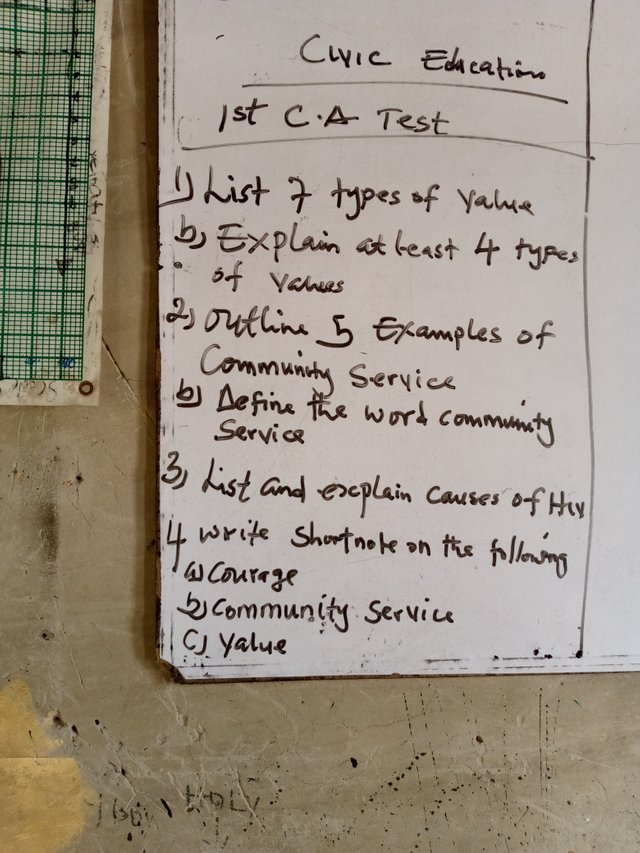 Civic Education
1st C.A Test
1) List 7 types of value
b) Explain at least 4 types
of values
2) outline 5 Examples of
Community Service
b) Define the word community
Service
3) List and explain causes of HIV
4 write Shortnote on the following
a) Courage
b) Community Service
c) Value